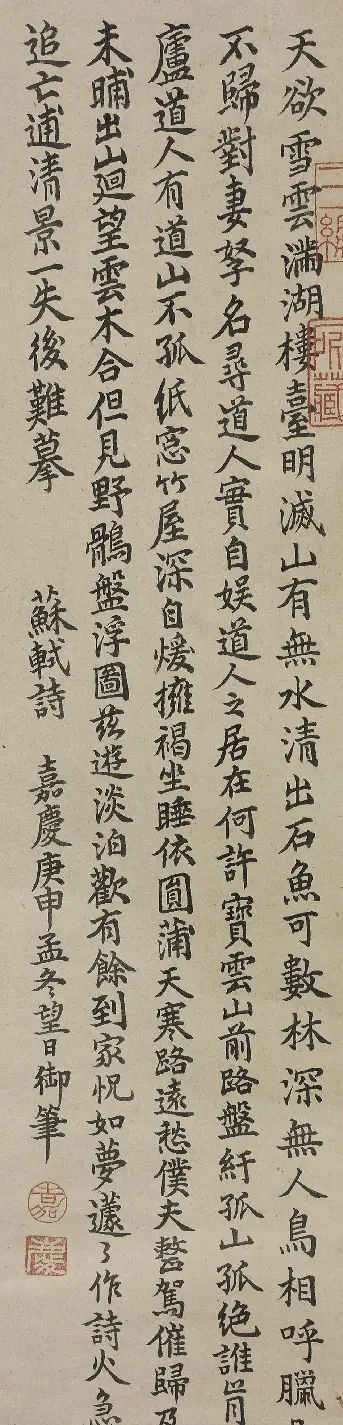 天欲雪雲滿湖樓臺明滅山有無水清出石魚可數林深無人鳥相呼臘
不歸對妻孥名尋道人實自娛道人之居在何許寶雲山前路盤紆孤山孤絕誰肯
廬道人有道山不孤紙窓竹屋深自煖擁褐坐睡依圓蒲天寒路遠愁僕夫整駕催歸及
未晡出山迴望雲木合但見野鶻盤浮圖茲遊淡泊歡有餘到家怳如夢蘧々作詩火急
追亡逋清景一失後難摹 蘇軾詩 嘉慶庚申孟冬望日御筆
所藏
嘉
慶